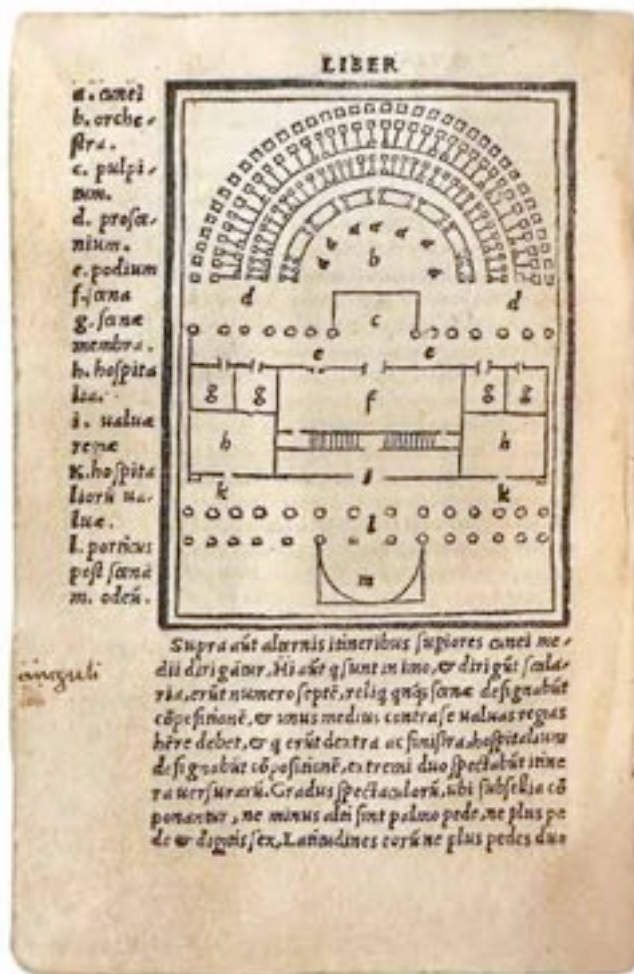 LIBER
a. cunei
b. orche-
stra.
c. pulpi-
tum.
d. prosce-
nium.
e. podium
f. scena
g. scenæ
membra.
h. hospita
lia.
i. ualuæ
regiæ
K. hospita
liorũ ua-
luæ.
l. porticus
post scenã
m. odeũ.
a a a a a a a
b
d d
c
e e
g g f g g
h h
i
k k
l
m
Supra aũt alternis itineribus supiores cunei me-
dii dirigãtur. Hi aũt q sunt in imo, & dirigũt scala-
ria, erũt numero septẽ, reliq qnqs scenæ designabũt
cõpositionẽ, & unus medius contra se ualuas regias
hẽre debet, & q erũt dextra ac sinistra, hospitalium
designabũt cõpositionẽ, extremi duo spectabũt itine
ra uersurarũ. Gradus spectaculorũ, ubi subsellia cõ
ponantur, ne minus alti sint palmo pede, ne plus pe
de & digitis sex, Latitudines eorũ ne plus pedes duo
anguli